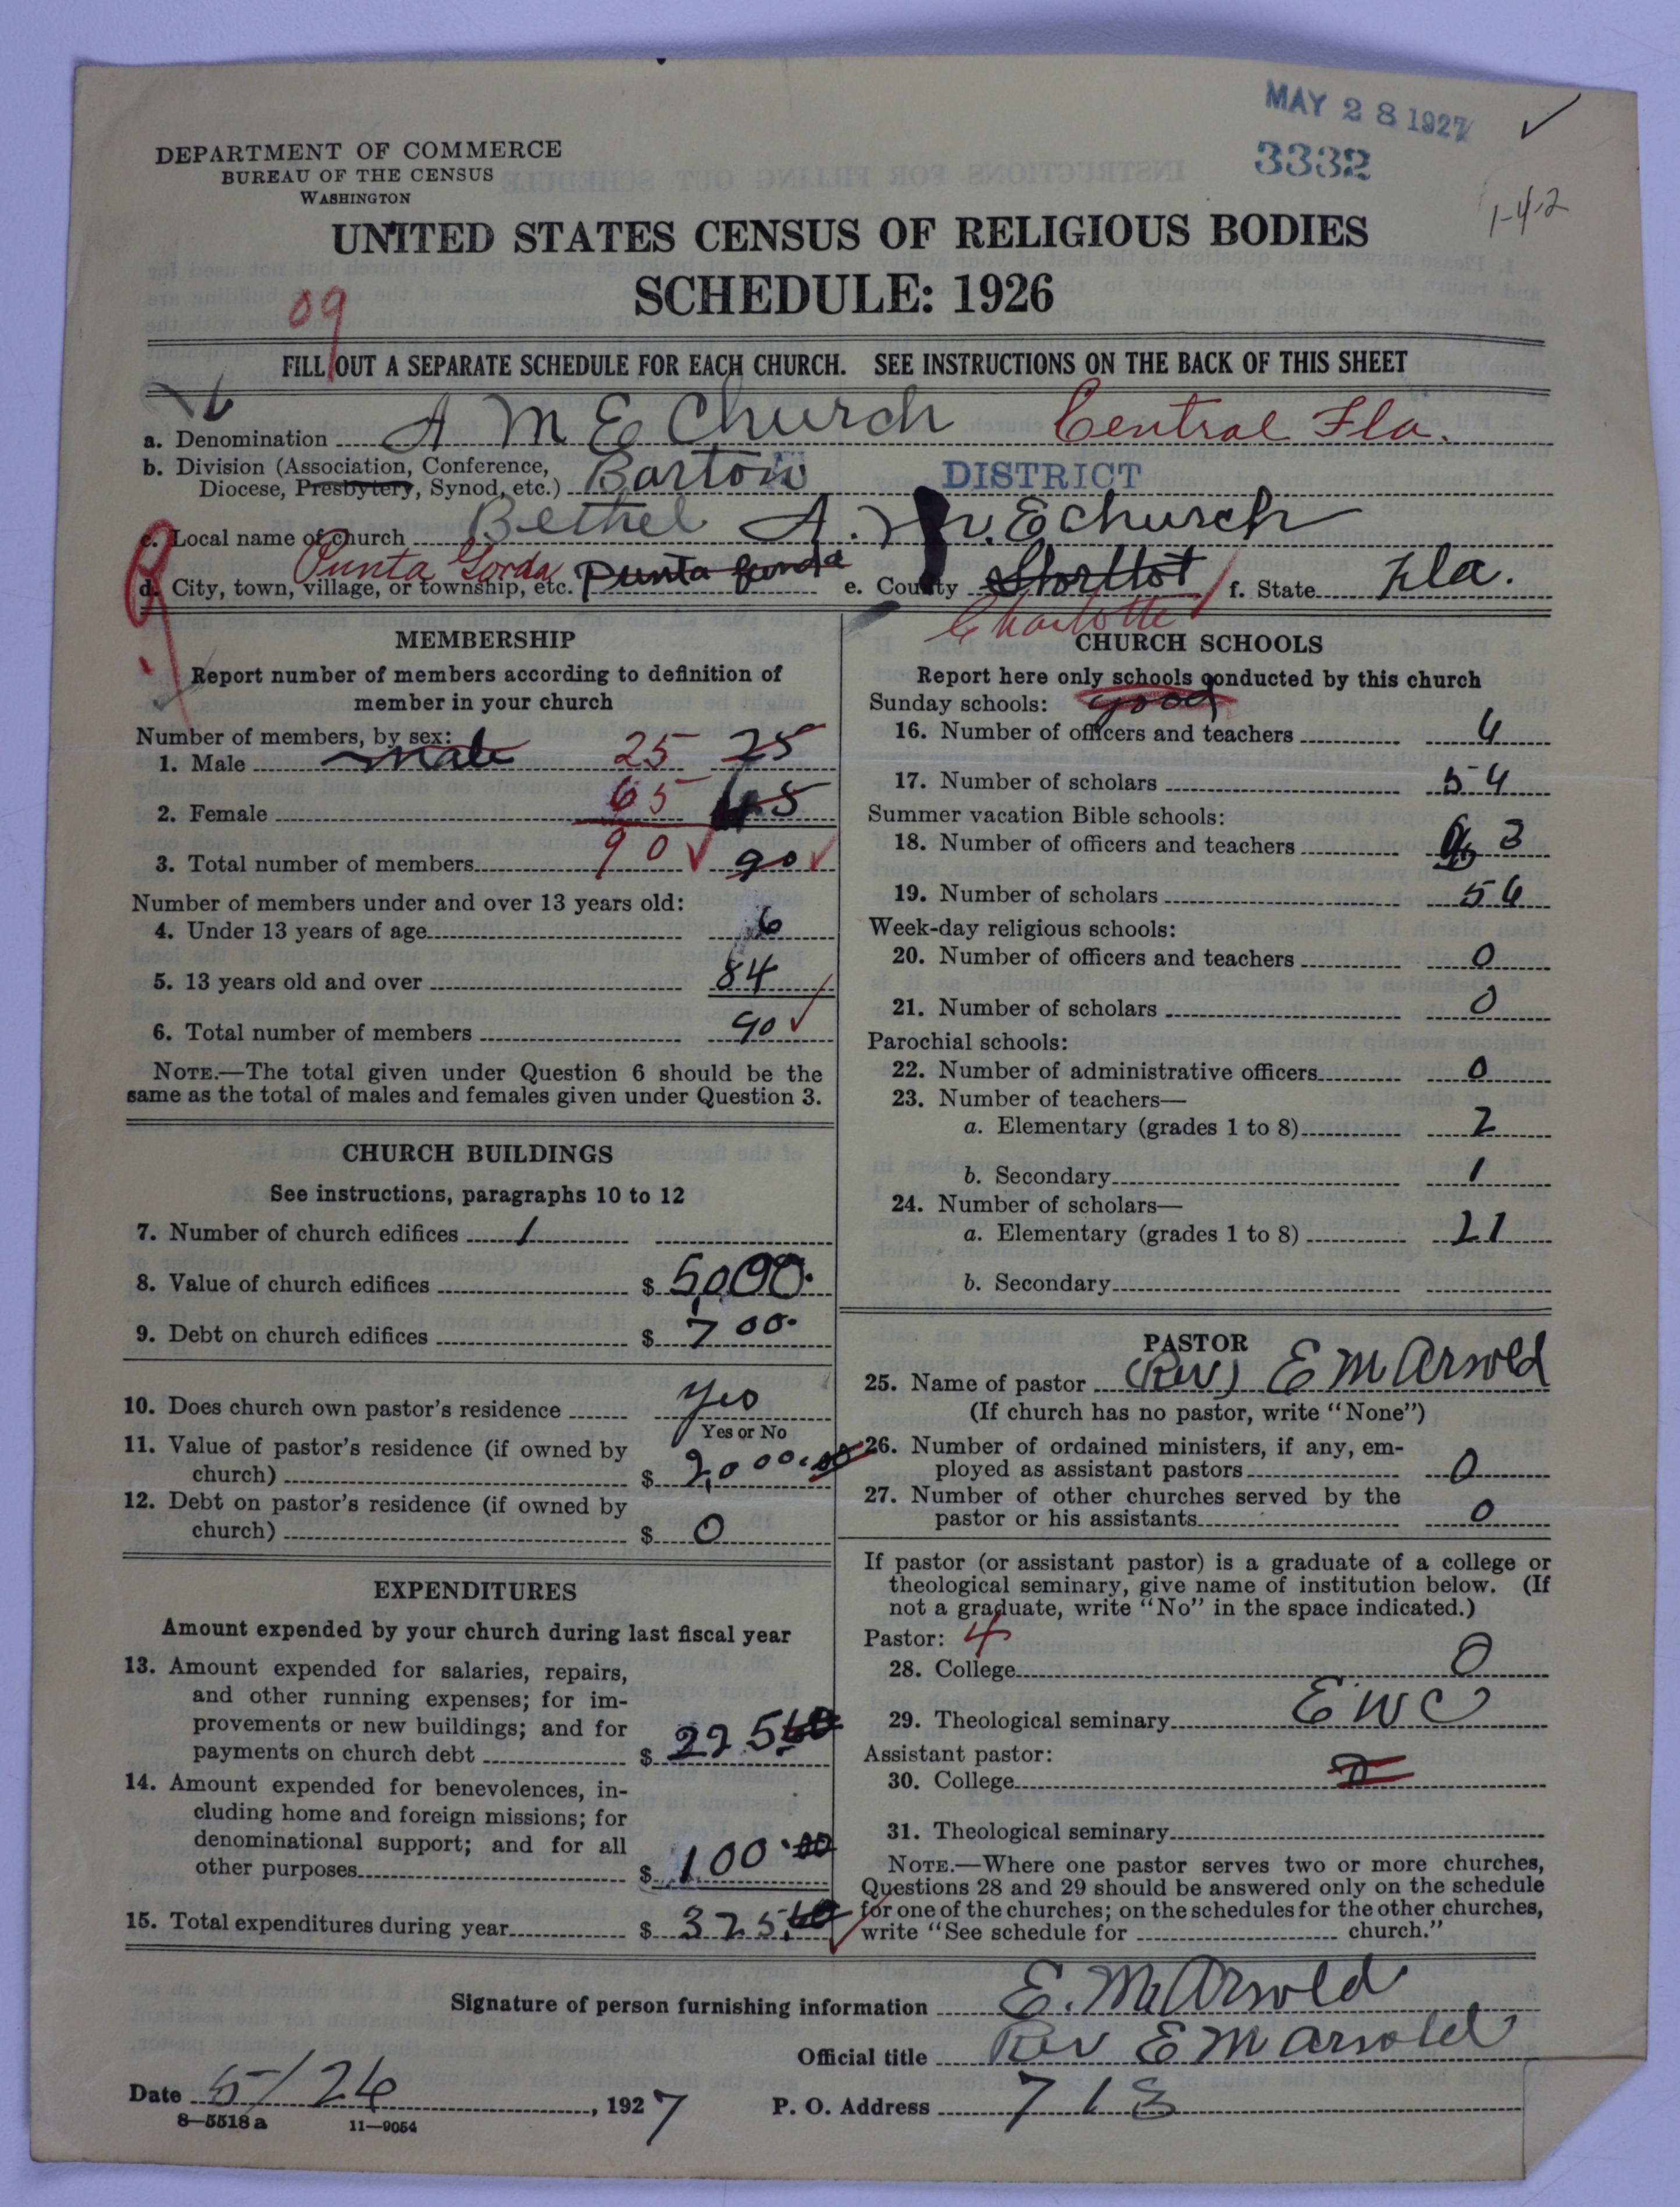 MAY 28 1927
3332
1-4-2
DEPARTMENT OF COMMERCE
BUREAU OF THE CENSUS
WASHINGTON
UNITED STATES CENSUS OF RELIGIOUS BODIES
SCHEDULE: 1926
09
FILL OUT A SEPARATE SCHEDULE FOR EACH CHURCH. SEE INSTRUCTIONS ON THE BACK OF THIS SHEET
a. Denomination A M E Church Central Fla.
b. Division (Association, Conference, Diocese, Presbytery, Synod, etc.) Bartow DISTRICT
c. Local name of church Bethel A. M. E Church
d. City, town, village, or township, etc. Punta Gorda Punta Gunda e. County Charlotte f. State Fla.
MEMBERSHIP
Report number of members according to definition of
member in your church
Number of members, by sex:
1. Male male 25 25
2. Female 65 65
3. Total number of members 90 90
Number of members under and over 13 years old:
4. Under 13 years of age 6
5. 13 years old and over 84
6. Total number of members 90
NOTE.—The total given under Question 6 should be the
same as the total of males and females given under Question 3.
CHURCH BUILDINGS
See instructions, paragraphs 10 to 12
7. Number of church edifices 1
8. Value of church edifices $ 5,000.
9. Debt on church edifices $ 700.
10. Does church own pastor's residence yes
Yes or No
11. Value of pastor's residence (if owned by
church) $ 2,000.00
12. Debt on pastor's residence (if owned by
church) $ 0
EXPENDITURES
Amount expended by your church during last fiscal year
13. Amount expended for salaries, repairs,
and other running expenses; for im-
provements or new buildings; and for
payments on church debt $ 225
14. Amount expended for benevolences, in-
cluding home and foreign missions; for
denominational support; and for all
other purposes $ 100.00
15. Total expenditures during year $ 325
CHURCH SCHOOLS
Report here only schools conducted by this church
Sunday schools: good
16. Number of officers and teachers 4
17. Number of scholars 54
Summer vacation Bible schools:
18. Number of officers and teachers 3
19. Number of scholars 56
Week-day religious schools:
20. Number of officers and teachers 0
21. Number of scholars 0
Parochial schools:
22. Number of administrative officers 0
23. Number of teachers—
a. Elementary (grades 1 to 8) 2
b. Secondary 1
24. Number of scholars—
a. Elementary (grades 1 to 8) 21
b. Secondary
PASTOR
25. Name of pastor (Rev) E M Arnold
(If church has no pastor, write "None")
26. Number of ordained ministers, if any, em-
ployed as assistant pastors 0
27. Number of other churches served by the
pastor or his assistants 0
If pastor (or assistant pastor) is a graduate of a college or
theological seminary, give name of institution below. (If
not a graduate, write "No" in the space indicated.)
Pastor: 4
28. College 0
29. Theological seminary E W C
Assistant pastor:
30. College
31. Theological seminary
NOTE.—Where one pastor serves two or more churches,
Questions 28 and 29 should be answered only on the schedule
for one of the churches; on the schedules for the other churches,
write "See schedule for church."
Signature of person furnishing information E. M Arnold
Official title Rev E M Arnold
Date 5/26, 1927 P. O. Address 713
8—5518 a 11—9054